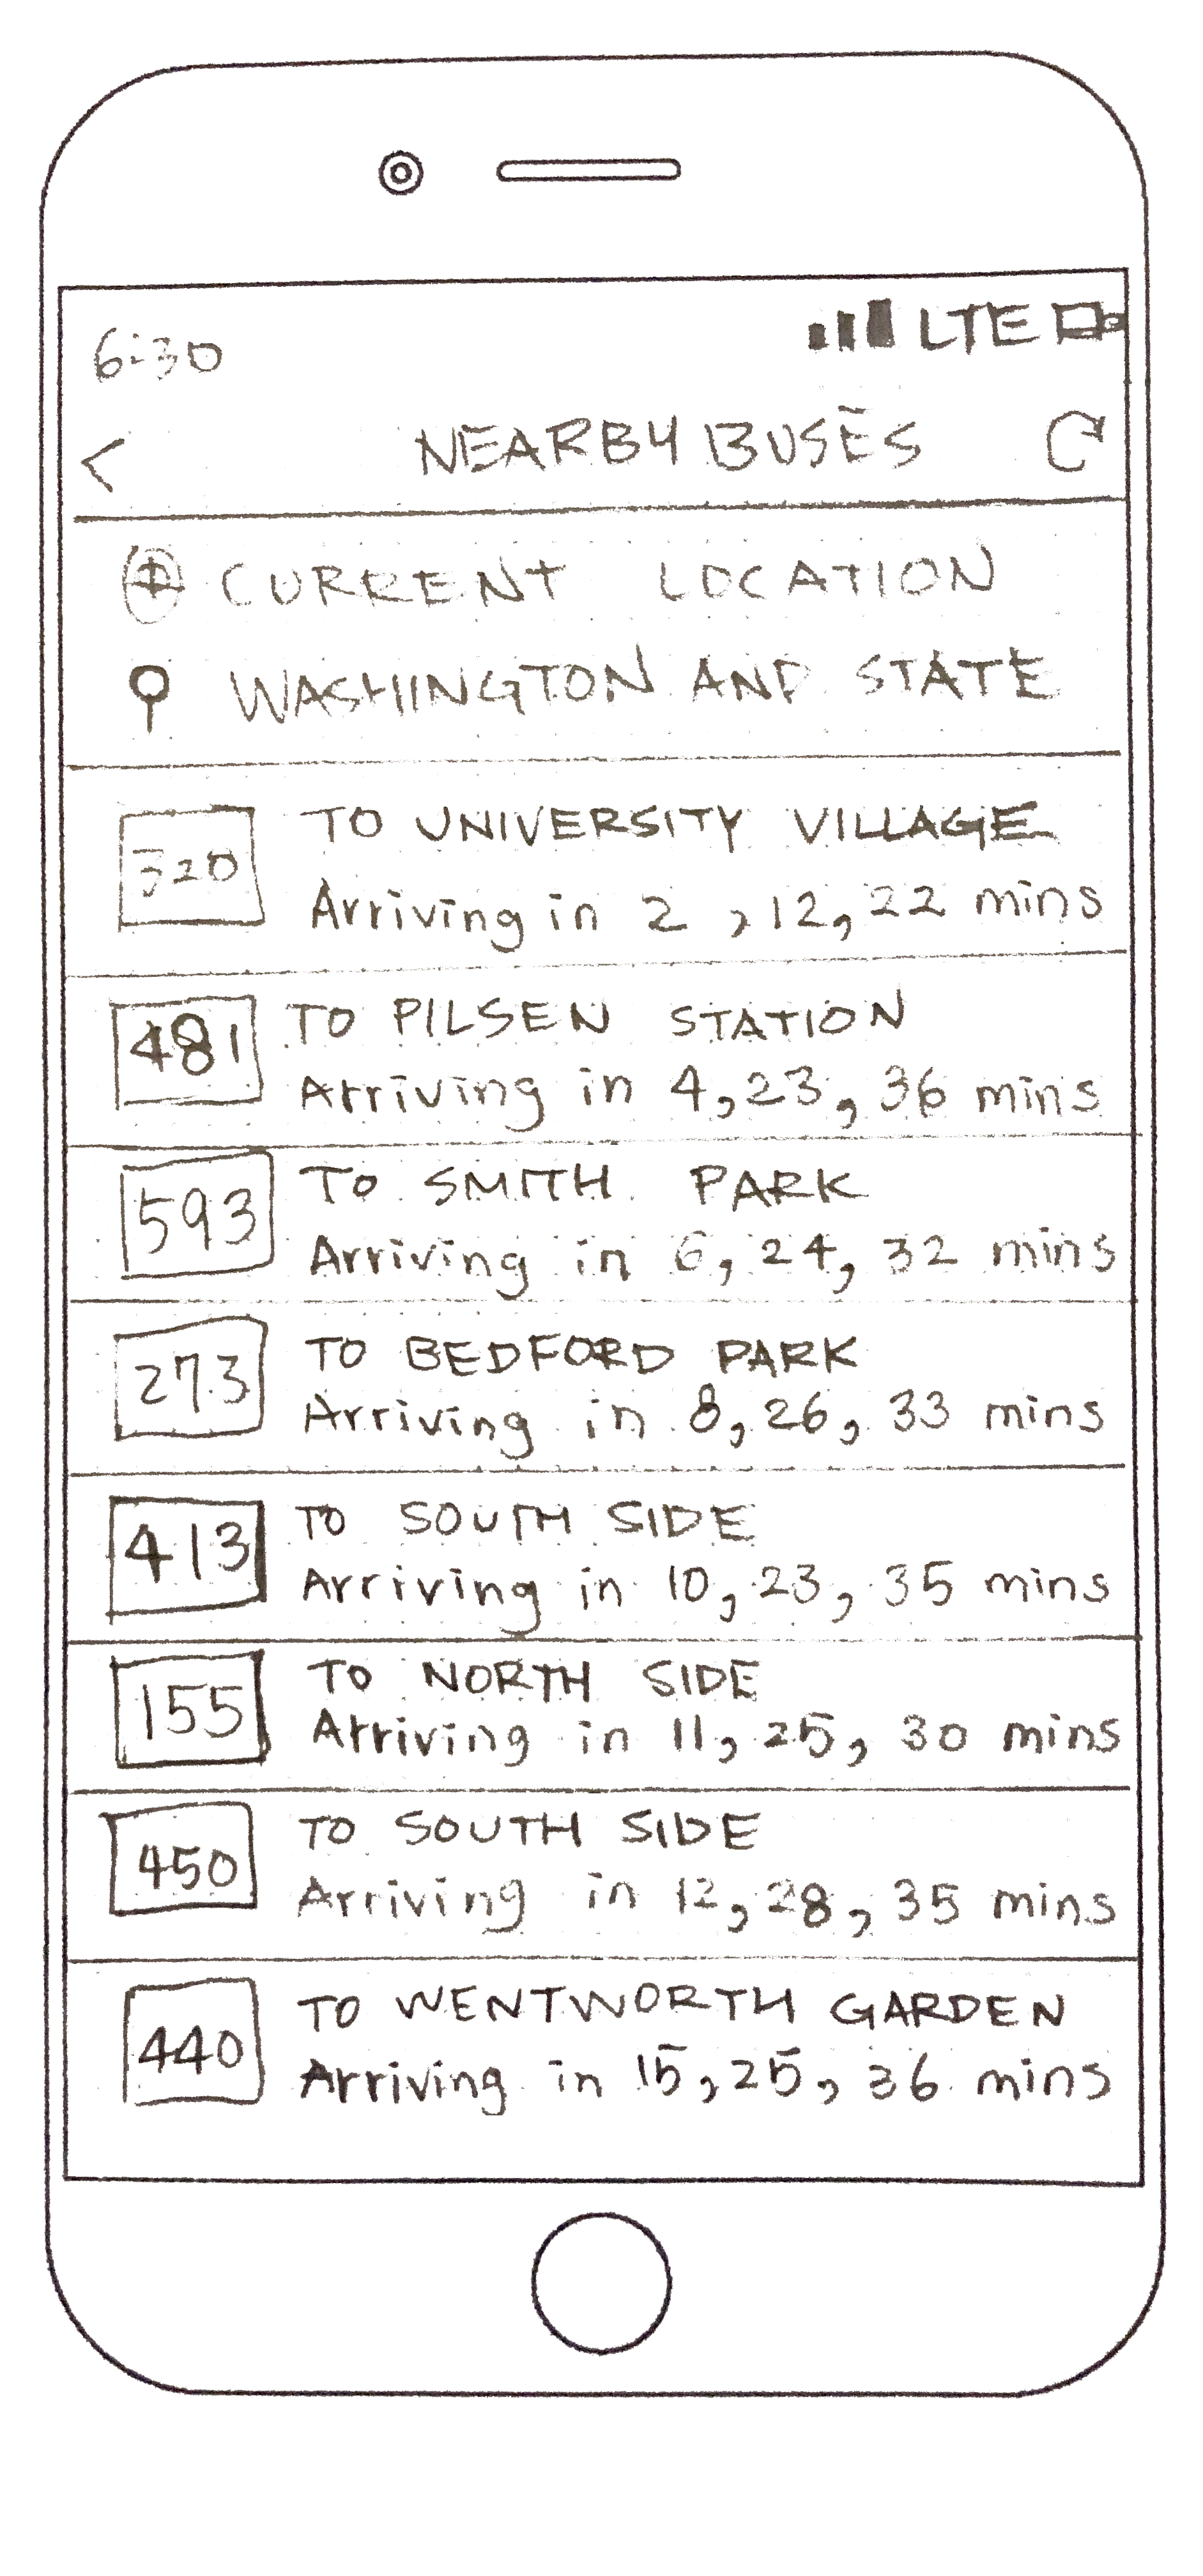 6:30 LTE
< NEARBY BUSES
CURRENT LOCATION
WASHINGTON AND STATE
320 TO UNIVERSITY VILLAGE
Arriving in 2, 12, 22 mins
481 TO PILSEN STATION
Arriving in 4, 23, 36 mins
593 TO SMITH PARK
Arriving in 6, 24, 32 mins
273 TO BEDFORD PARK
Arriving in 8, 26, 33 mins
413 TO SOUTH SIDE
Arriving in 10, 23, 35 mins
155 TO NORTH SIDE
Arriving in 11, 25, 30 mins
450 TO SOUTH SIDE
Arriving in 12, 28, 35 mins
440 TO WENTWORTH GARDEN
Arriving in 15, 25, 36 mins